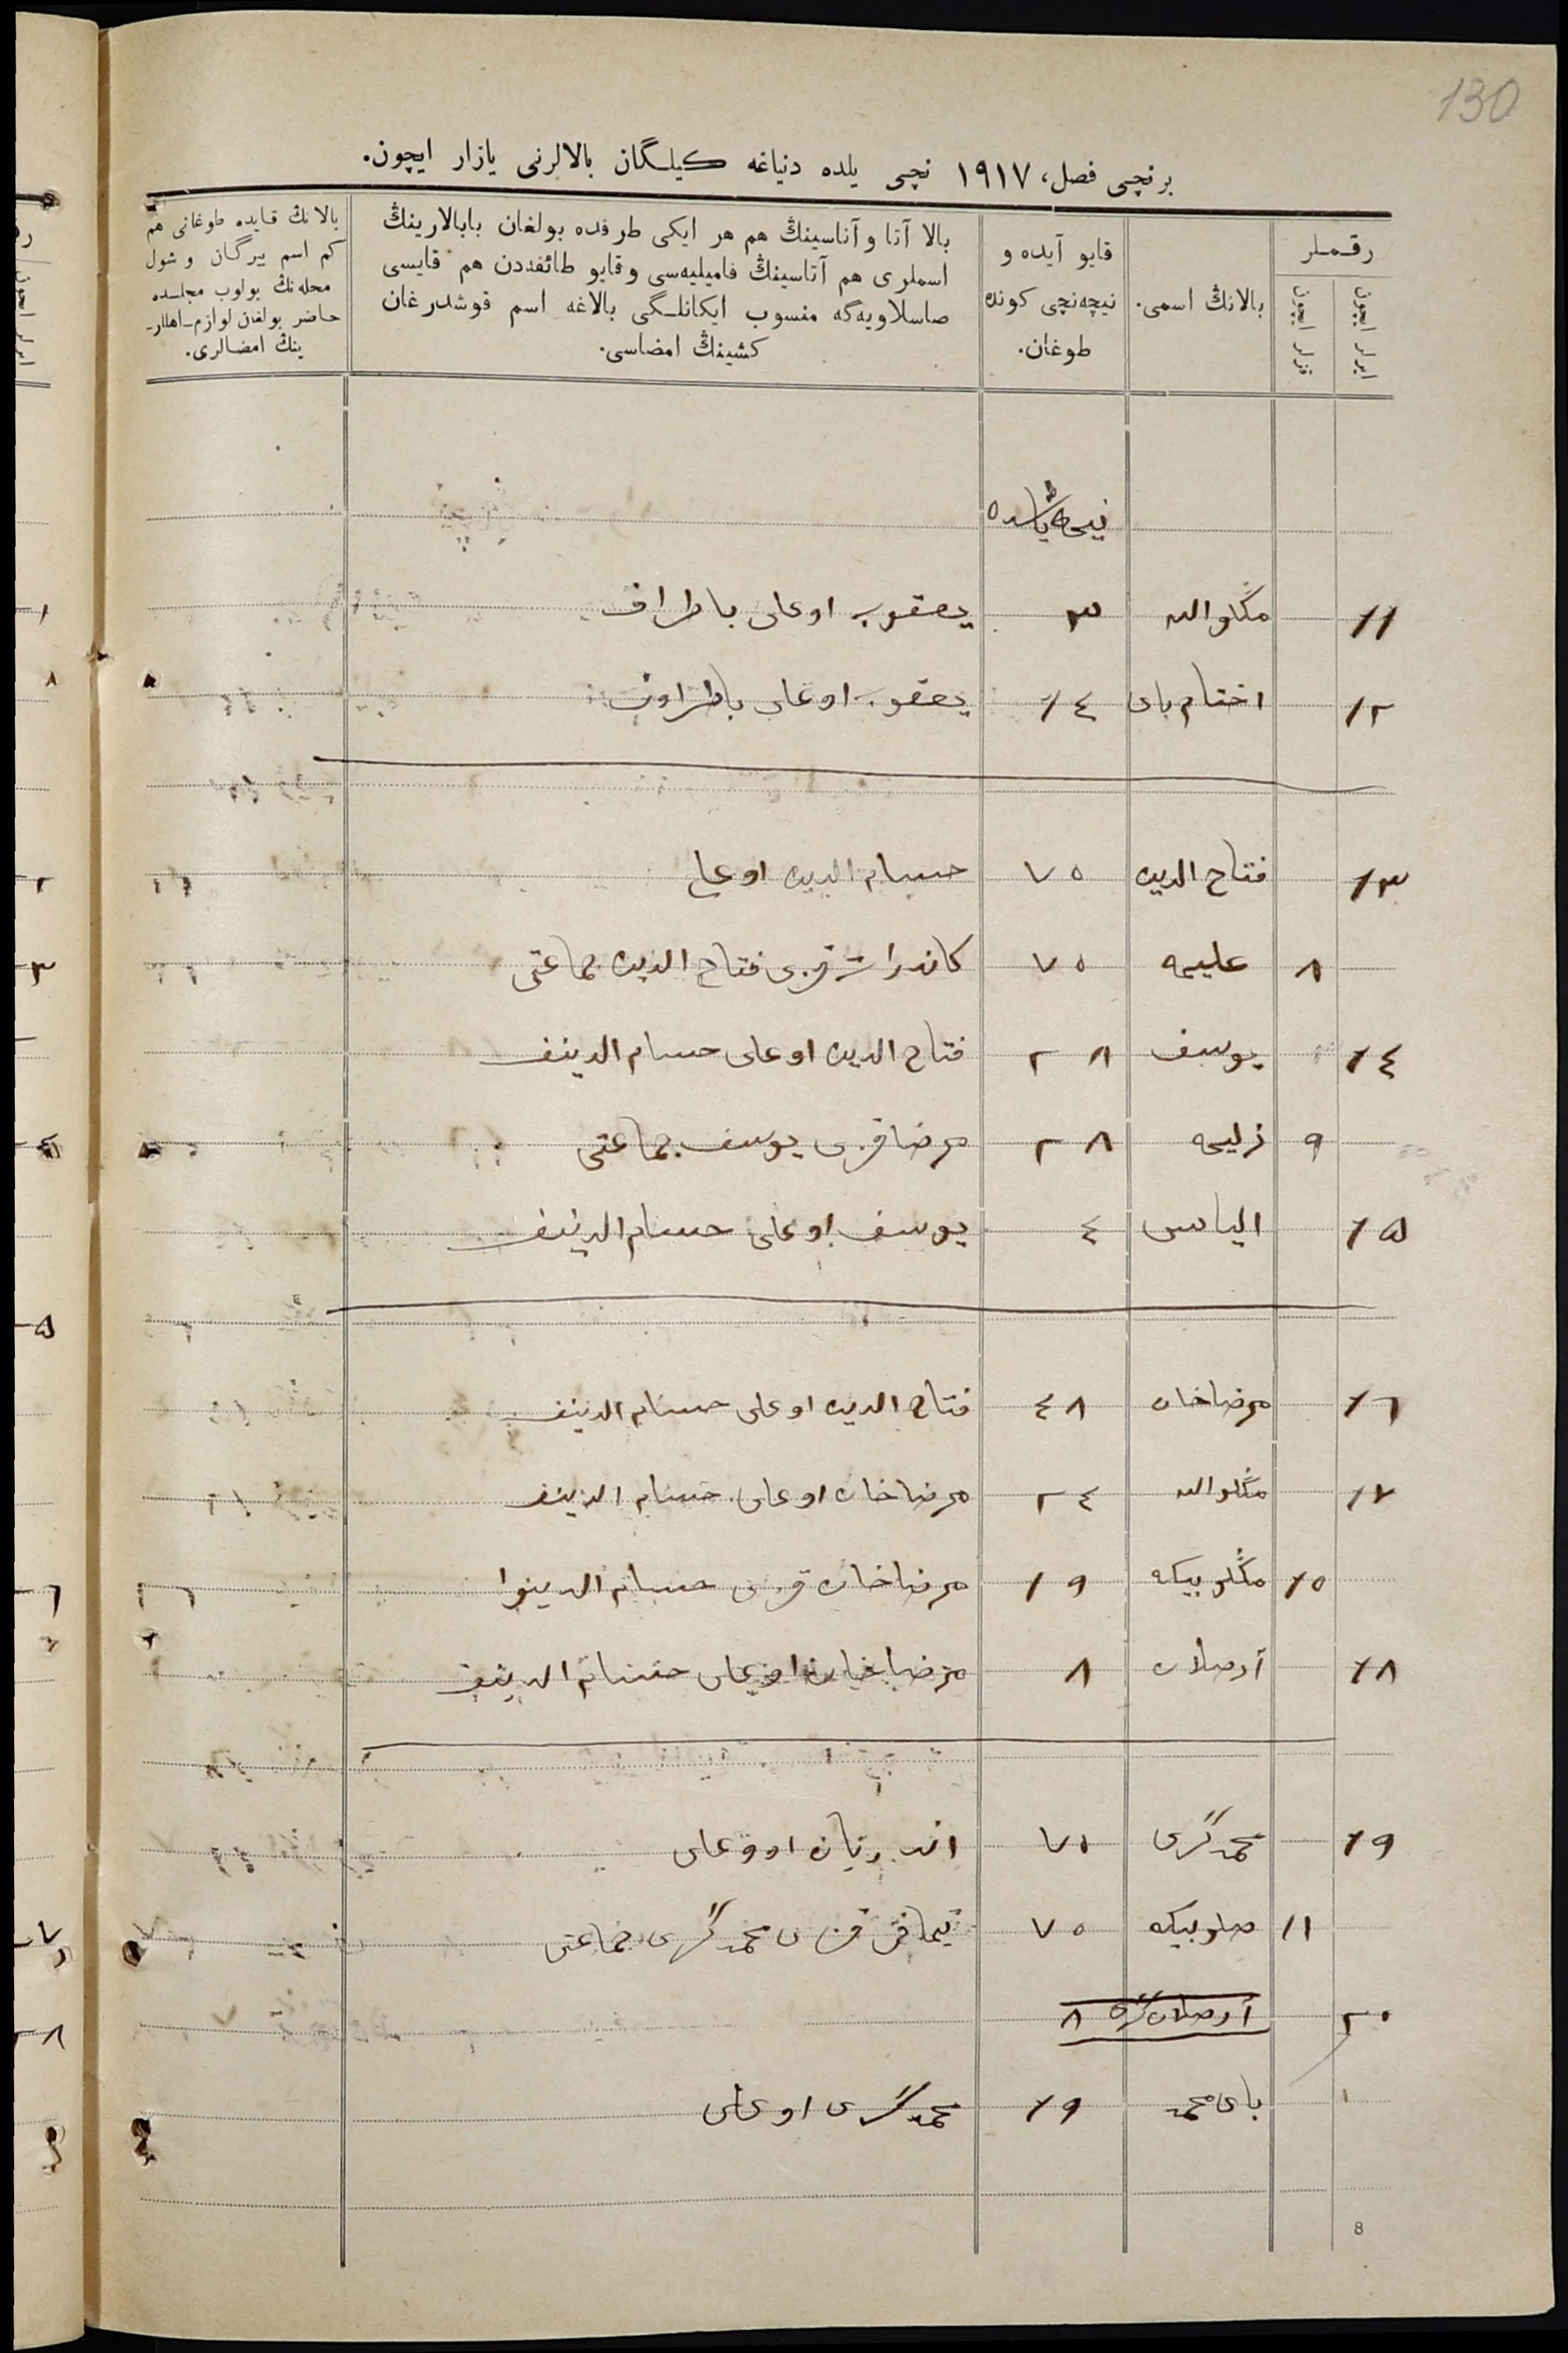 130
برنچی فصل، ١٩١٧ نچی يلده دنياغه كيلگان بالالرنی يازار ايچون.
رقملر
ايرلر ايچون
قزلر ايچون
بالانڭ اسمی.
قايو آيده و
نيچه‌نچی كونده
طوغان.
بالا آتا و آناسينڭ هم هر ايكی طرفده بولغان بابالارينڭ
اسملری هم آتاسينڭ فاميليه‌سی و قايو طائفه‌دن هم قايسی
صاسلاويه‌گه منسوب ايكانلگی بالاغه اسم قوشدرغان
كشينڭ امضاسی.
بالانڭ قايده طوغانی هم
كم اسم بيرگان و شول
محله‌نڭ بولوب مجلسده
حاضر بولغان لوازم-اهللر-
ينڭ امضالری.
نيچه ياشده
١١ منڭلو الله ٣ يعقوب اوغلی باطراف
١٢ اختام بای ١٤ يعقوب اوغلی باطراوف
١٣ فتاح الدين ٧٥ حسام الدين اوغلی
٨ عليمه ٧٥ قزی فتاح الدين جماعتی
١٤ يوسف ٢٨ فتاح الدين اوغلی حسام الدينف
٩ زليحه ٢٨ مرضا قزی يوسف جماعتی
١٥ الياس ٤ يوسف اوغلی حسام الدينف
١٦ مرضاخان ٤٨ فتاح الدين اوغلی حسام الدينف
١٧ منڭلو الله ٢٤ مرضاخان اوغلی حسام الدينف
١٥ منڭلو بيكه ١٩ مرضاخان قزی حسام الدينوا
١٨ آرصلان ٨ مرضاخان اوغلی حسام الدينف
١٩ محمد گری ٧٥ اوغلی
١١ صلو بيكه ٧٥ قزی محمد گری جماعتی
٢٠ آرصلان گری ٨
بای محمد ١٩ محمد گری اوغلی
8